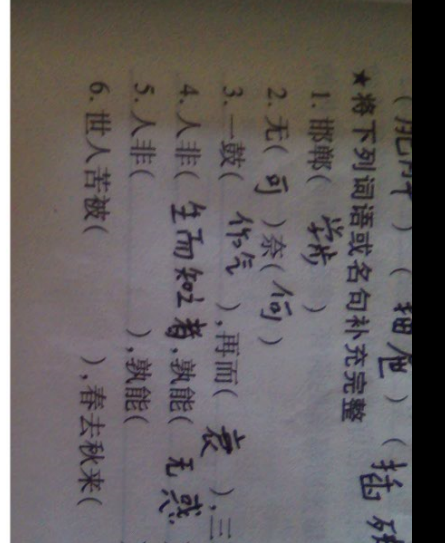 ) (
★将下列词语或名句补充完整
1. 邯郸( 学步 )
2. 无( 可 )奈( 何 )
3. 一鼓( 作气 ),再而( 衰 ),三
4. 人非( 生而知之者,孰能( 无惑
5. 人非( ),孰能(
6. 世人苦被( ),春去秋来(